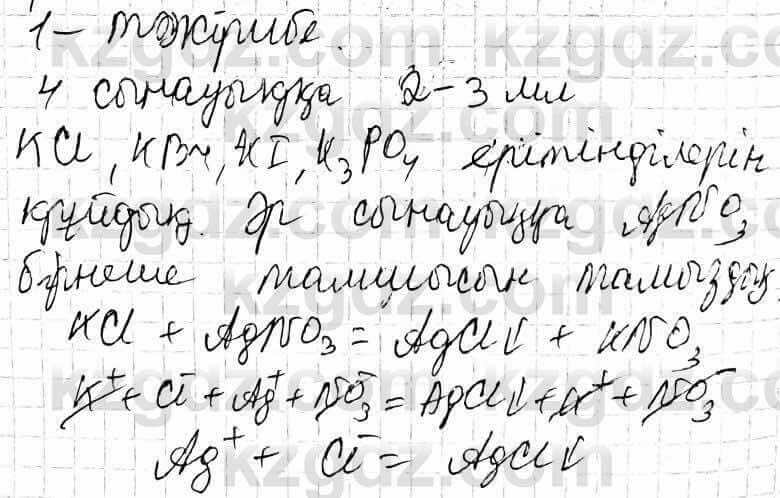 1 - тәжірибе.
4 сынауыққа 2-3 мл
KCl, KBr, KI, K₃PO₄ ерітінділерін
құйдық. Әр сынауыққа AgNO₃
бірнеше тамшысын тамыздық
KCl + AgNO₃ = AgCl↓ + KNO₃
K⁺ + Cl⁻ + Ag⁺ + NO₃⁻ = AgCl↓ + K⁺ + NO₃⁻
Ag⁺ + Cl⁻ = AgCl↓
kzgdz.com